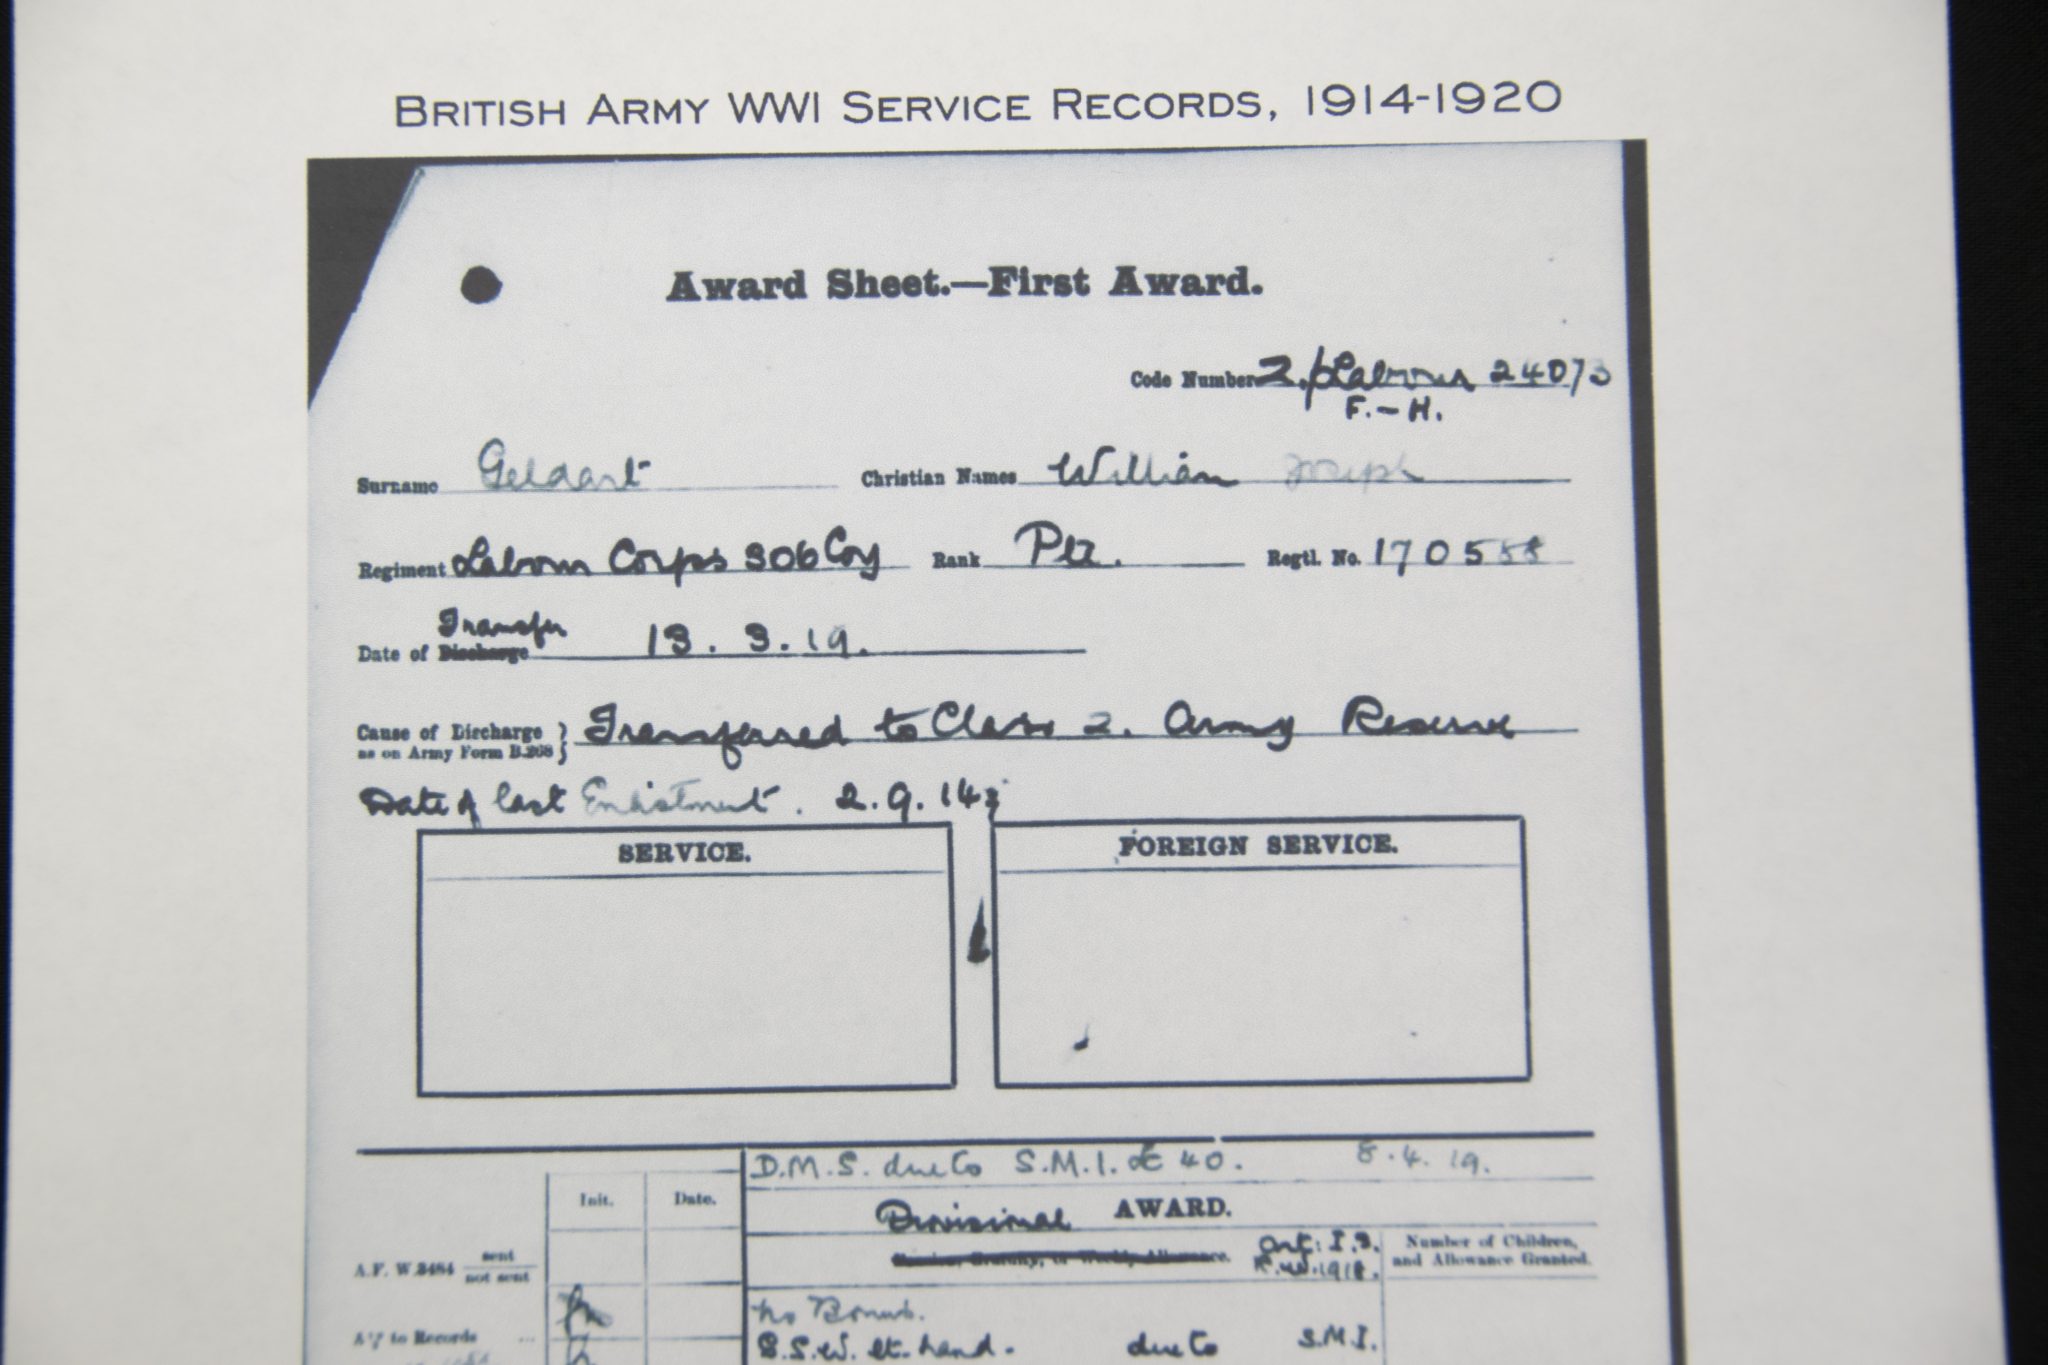 BRITISH ARMY WWI SERVICE RECORDS, 1914-1920
Award Sheet.—First Award.
Code Number 2./Labour 24073
F.-H.
Surname Geldart Christian Names William Joseph
Regiment Labour Corps 306 Coy Rank Pte. Regtl. No. 170588
Transfer
Date of Discharge 13.3.19.
Cause of Discharge } Transferred to Class 2. Army Reserve
as on Army Form B.268 }
Date of last Enlistment. 2.9.14
SERVICE. FOREIGN SERVICE.
D.M.S. due to S.M.I. 40. 8.4.19.
Init. Date.
AWARD.
Art: I.3.
R.W. 1918.
Number of Children,
and Allowance Granted.
A.F. W.3484 sent
not sent
No Bonus.
to Records ...
G.S.W. lt. hand. due to S.M.I.